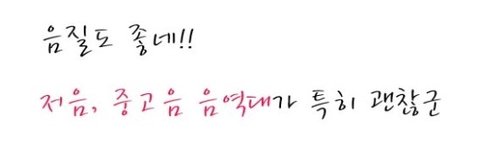 음질도 좋네!!
저음, 중고음 음역대가 특히 괜찮군